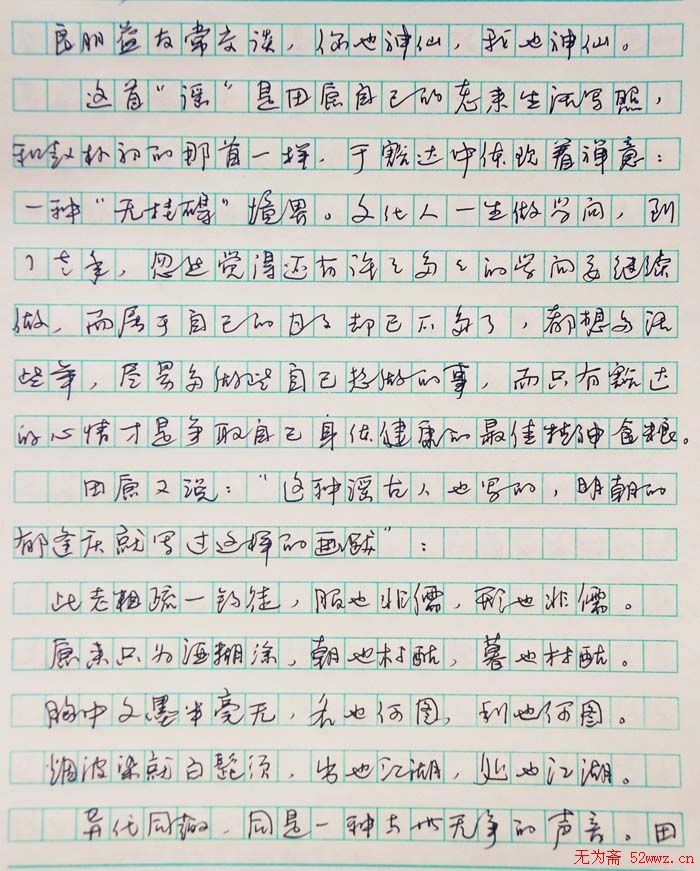 良朋益友常交谈，你也神仙，我也神仙。
这首“谣”是田原自己的老来生活写照，
和赵朴初的那首一样，于豁达中体现着禅意：
一种“无挂碍”境界。文化人一生做学问，到
了老年，忽然觉得还有许许多多的学问要继续
做，而属于自己的日子却已不多了，都想多活
些年，尽量多做些自己想做的事，而只有豁达
的心情才是争取自己身体健康的最佳精神食粮。
田原又说：“这种谣古人也写的，明朝的
郁逢庆就写过这样的画跋”：
此老粗疏一钓徒，服也非儒，形也非儒。
原来只为酒糊涂，朝也村酤，暮也村酤。
胸中文墨半毫无，名也何图，利也何图。
烟波染就白髭须，出也江湖，处也江湖。
异代同趣，同是一种与世无争的声音。田
无为斋 52wwz.cn